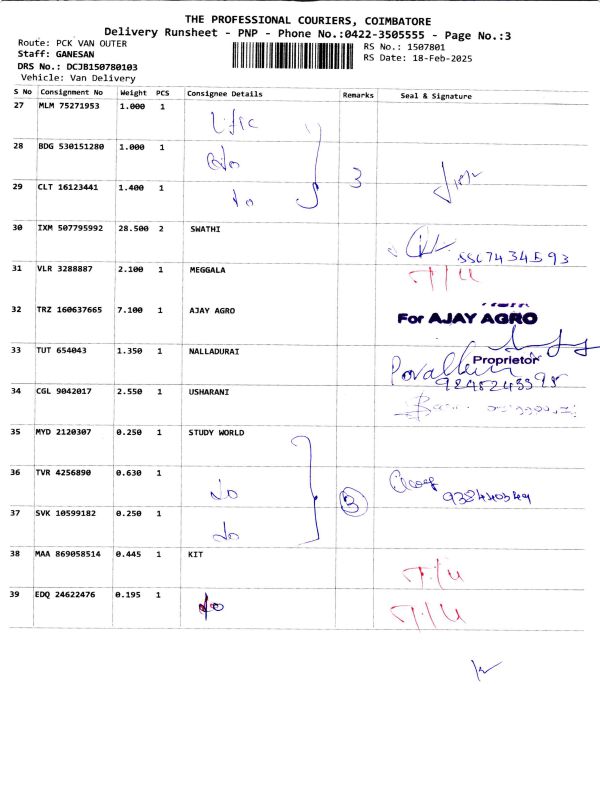 THE PROFESSIONAL COURIERS, COIMBATORE
Delivery Runsheet - PNP - Phone No.:0422-3505555 - Page No.:3
Route: PCK VAN OUTER
RS No.: 1507801
Staff: GANESAN
RS Date: 18-Feb-2025
DRS No.: DCJB150780103
Vehicle: Van Delivery
S No Consignment No Weight PCS Consignee Details Remarks Seal & Signature
27 MLM 75271953 1.000 1
28 BDG 530151280 1.000 1
29 CLT 16123441 1.400 1 do 3
30 IXM 507795992 28.500 2 SWATHI
31 VLR 3288887 2.100 1 MEGGALA T/U
32 TRZ 160637665 7.100 1 AJAY AGRO For AJAY AGRO
33 TUT 654043 1.350 1 NALLADURAI Proprietor
34 CGL 9042017 2.550 1 USHARANI
35 MYD 2120307 0.250 1 STUDY WORLD
36 TVR 4256890 0.630 1 do 3
37 SVK 10599182 0.250 1 do
38 MAA 869058514 0.445 1 KIT T/U
39 EDQ 24622476 0.195 1 do T/U